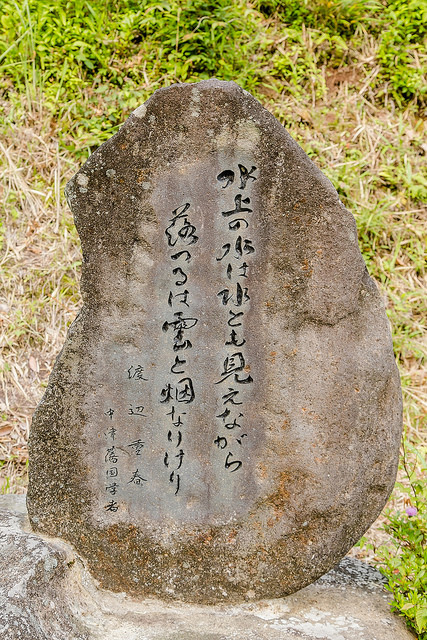 水上の水は水とも見えながら
落つるは雲と烟なりけり
渡辺重春
中津藩国学者